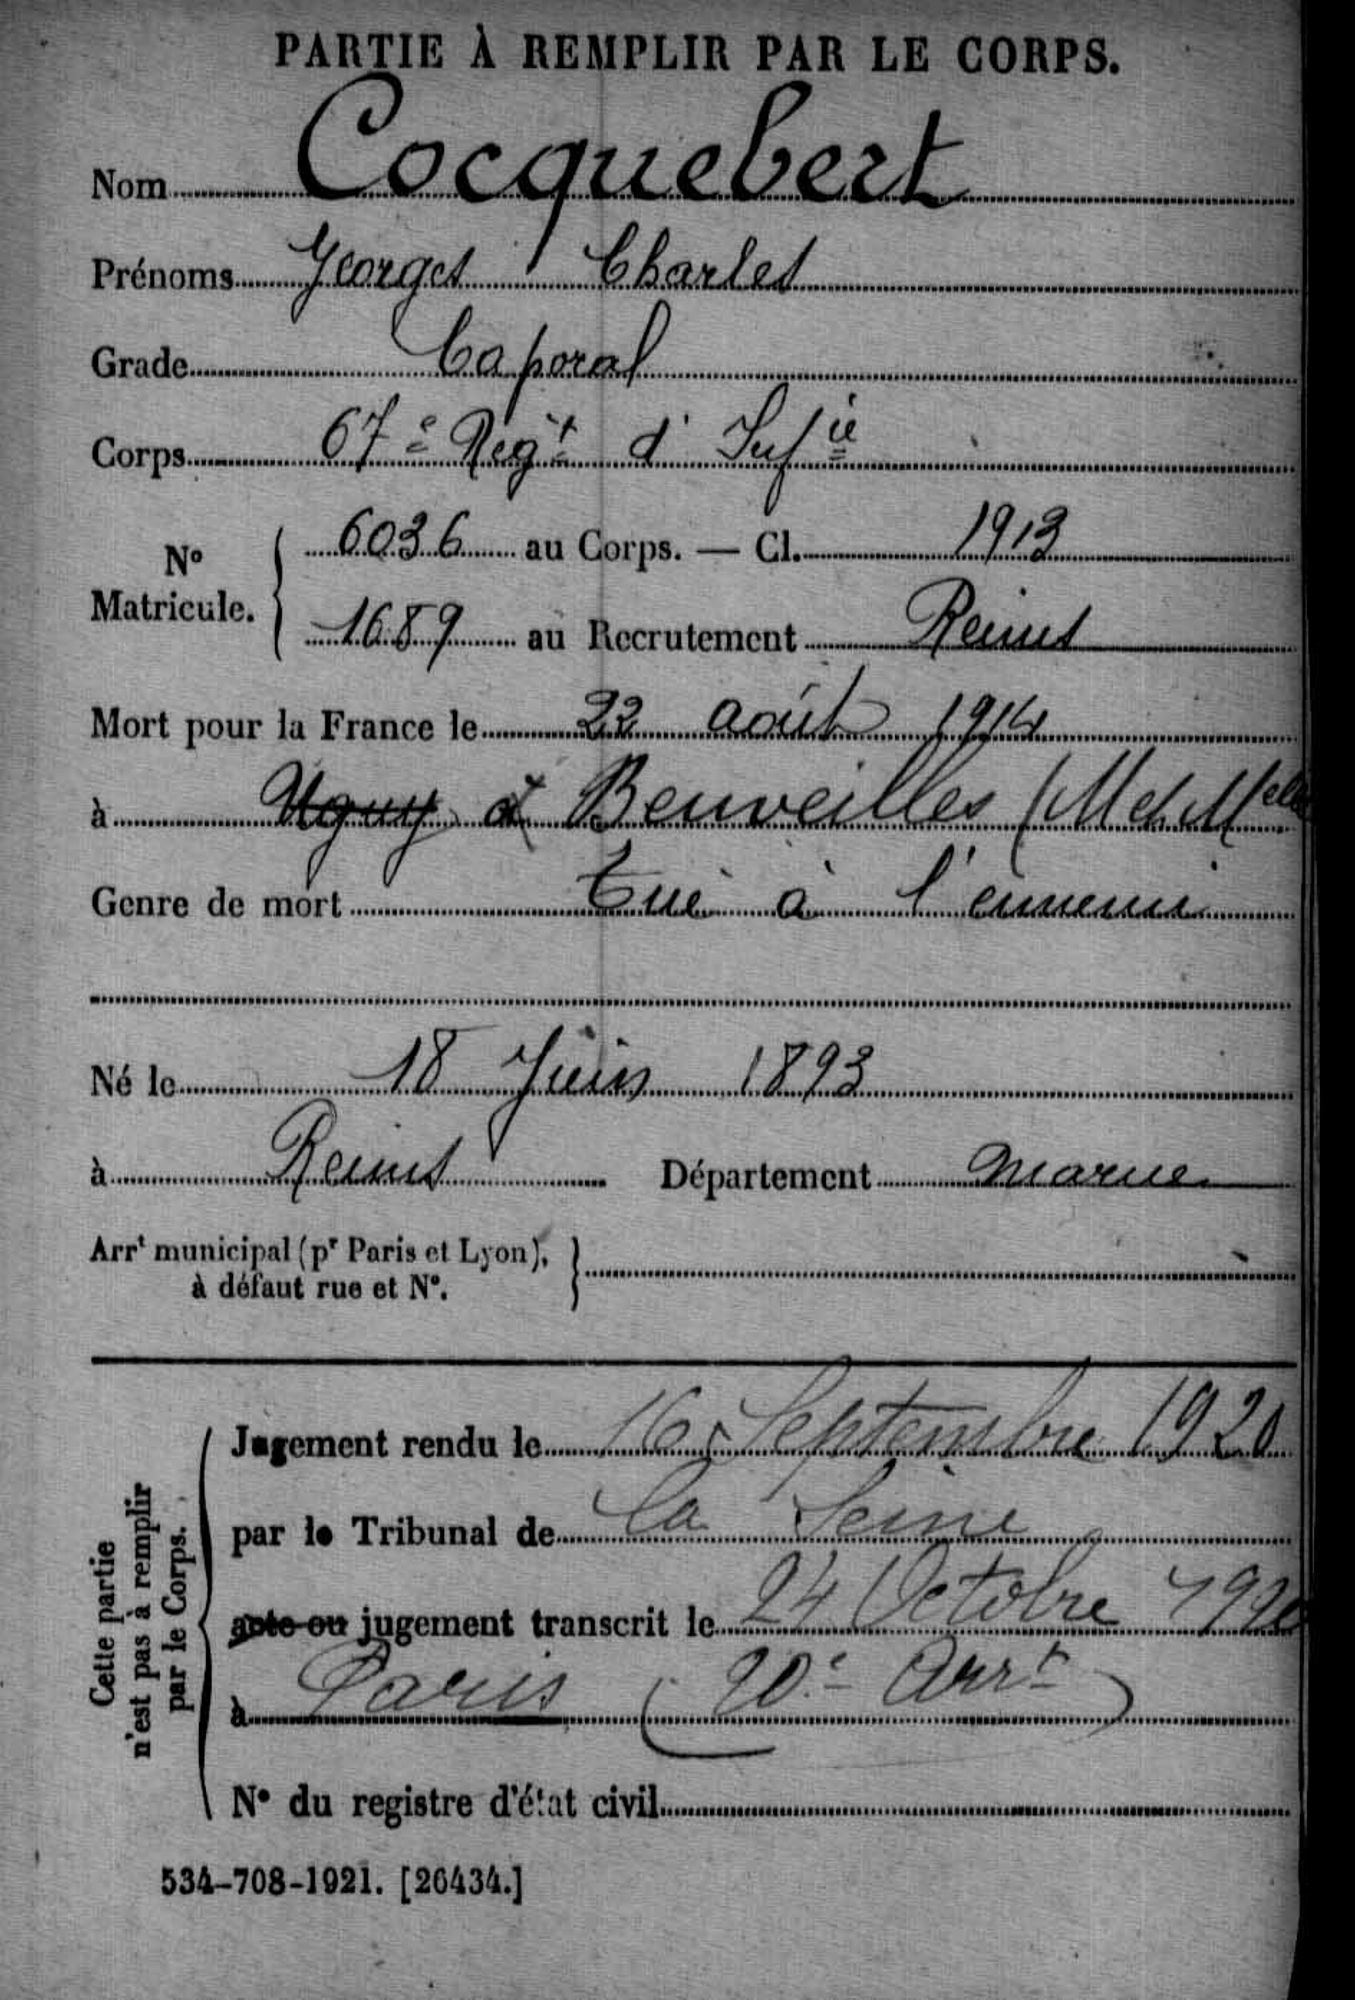 PARTIE À REMPLIR PAR LE CORPS.
Nom Cocquebert
Prénoms Georges Charles
Grade Caporal
Corps 67e Regt d' Infie
N° Matricule. { 6036 au Corps. — Cl. 1913
1689 au Recrutement Reims
Mort pour la France le 22 août 1914
à Ugny et Beuveilles (M et Melle
Genre de mort Tué à l'ennemi
Né le 18 Juin 1893
à Reims Département Marne
Arrt municipal (pr Paris et Lyon),
à défaut rue et N°. }
Cette partie
n'est pas à remplir
par le Corps.
Jugement rendu le 16 Septembre 1920
par le Tribunal de la Seine
acte ou jugement transcrit le 24 Octobre
à Paris (20e Arrt)
N° du registre d'état civil
534-708-1921. [26434.]